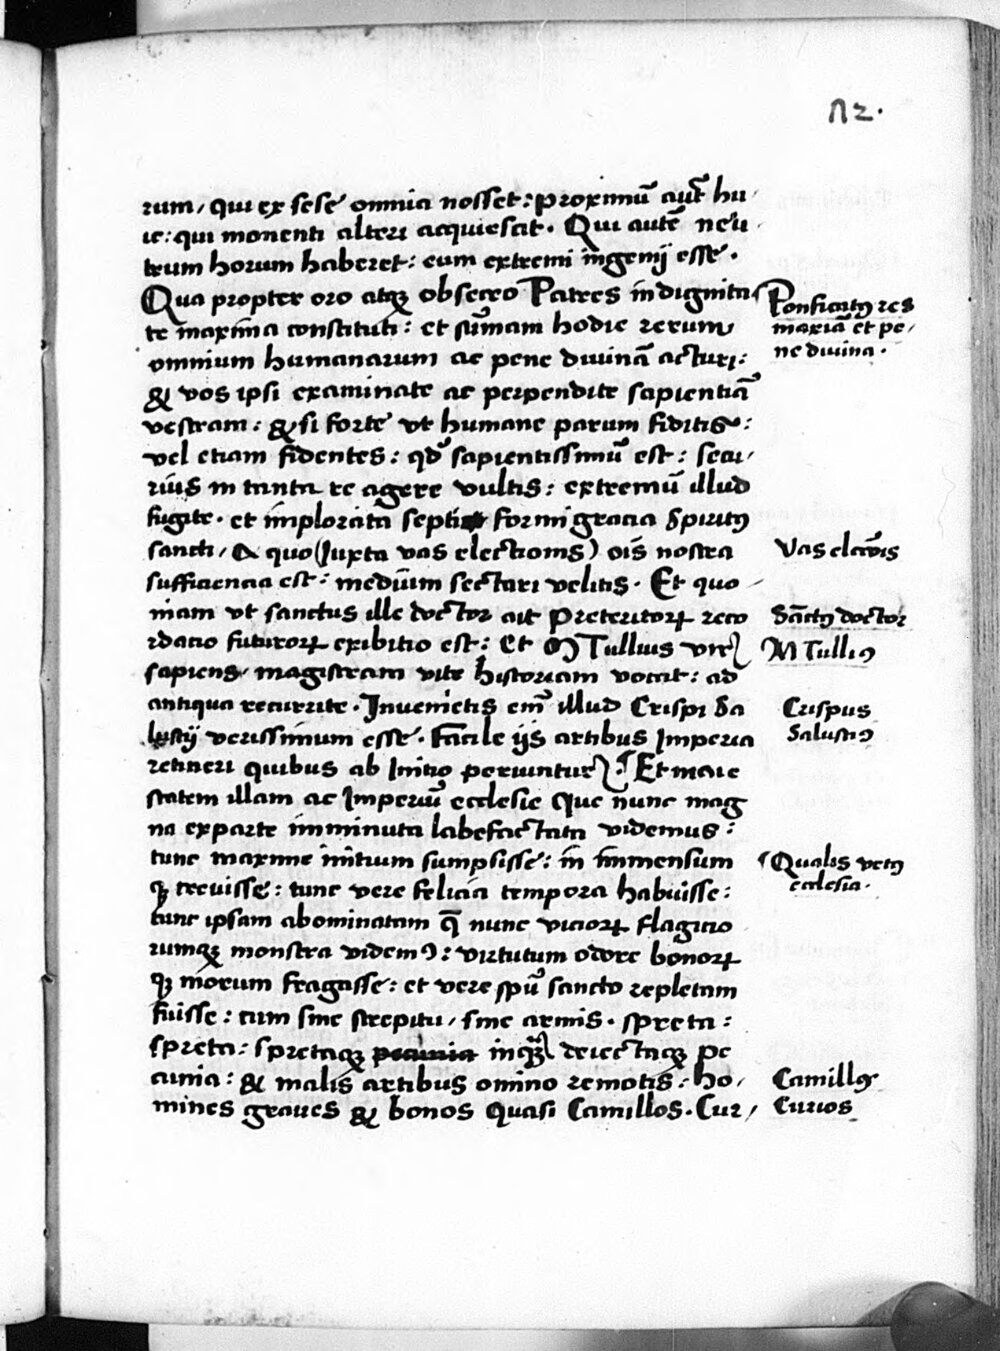 72.
rum, qui ex sese omnia nosset: proximū aūt hu,
ic: qui monenti alteri acquiescat. Qui autē neu,
trum horum haberet: eum extremi ingenij esse.
Qua propter oro atqꝫ obsecro Patres in dignita,
te maxima constituti: et sūmam hodie rerum
omnium humanarum ac pene diuinā acturi:
& vos ipsi examinate ac perpendite sapientiā
vestram: & si forte vt humane parum fiditis:
vel etiam fidentes: qd̄ sapientissimū est: secu,
rius in tanta re agere vultis: extremū illud
fugite. et implorata septi formi gracia Spiritꝰ
sancti, A quo (Iuxta vas electionis) oīs nostra
sufficiencia est: medium sectari velitis. Et quo,
niam vt sanctus ille doctor ait Preteritorꝝ reco
rdacio futurorꝝ exibitio est: Et M Tullius vir
sapiens, magistram vite historiam vocat: ad
antiqua recurrite. Inuenietis em̄ illud Crispi Sa
lustij verissimum esse. Facile ijs artibus Imperia
retineri quibus ab Initio periuntur. Et maie
statem illam ac Imperiū ecclesie Que nunc mag
na exparte imminuta labefactata videmus:
tunc maxime initium sumpsisse: in immensum
qꝫ creuisse: tunc vere felicia tempora habuisse:
tunc ipsam abominatam q̄ nunc viciorꝝ flagicio
rumqꝫ monstra videmꝰ: virtutum odore bonorꝝ
qꝫ morum fragasse: et vere spū sancto repletam
fuisse: cum sine strepitu, sine armis. spreta:
spreta: spretaqꝫ pecunia deiectaqꝫ pe
cunia: & malis artibus omino remotis: ho,
mines graues & bonos quasi Camillos. Cur,
Pontificatꝰ res
maxiā et pe,
ne diuina.
Vas elcōis
Sāctꝰ doctor
M Tulliꝰ
Crispus
Salustiꝰ
Qualis vetꝰ
ecclesia.
Camillos
Curios